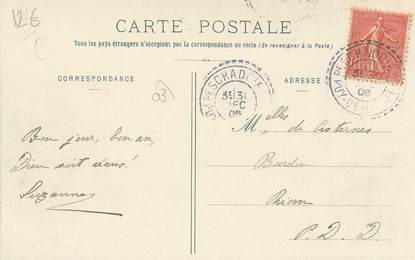 12€
CARTE POSTALE
Tous les pays étrangers n'acceptent pas la correspondance au recto (Se renseigner à la Poste)
CORRESPONDANCE
ADRESSE
03
Bon jour, bon an,
Dieu soit céans!
Suzanne
Melles de Costernes
Bardon
Riom
P. D. D.